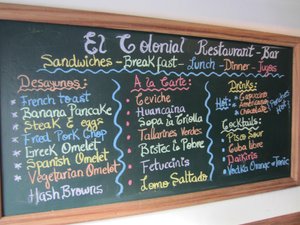 El Colonial Restaurant-Bar
Sandwiches-Breakfast-Lunch-Dinner-Jugos
Desayunos:
* French toast
* Banana Pancake
* Steak & eggs
* Fried Pork Chop
* Greek Omelet
* Spanish Omelet
* Vegetarian Omelet
Hash Browns
A la Carte:
Ceviche
Huancaina
Sopa la Criolla
Tallarines Verdes
Bistec lo Pobre
Fetuccinis
Lomo Saltado
Drinks:
Hot:
Capuccino
Americano
chocolate
Hot!
Cocktails:
Pisco Sour
Cuba libre
Daikiris
Vodka Orange or Tonic